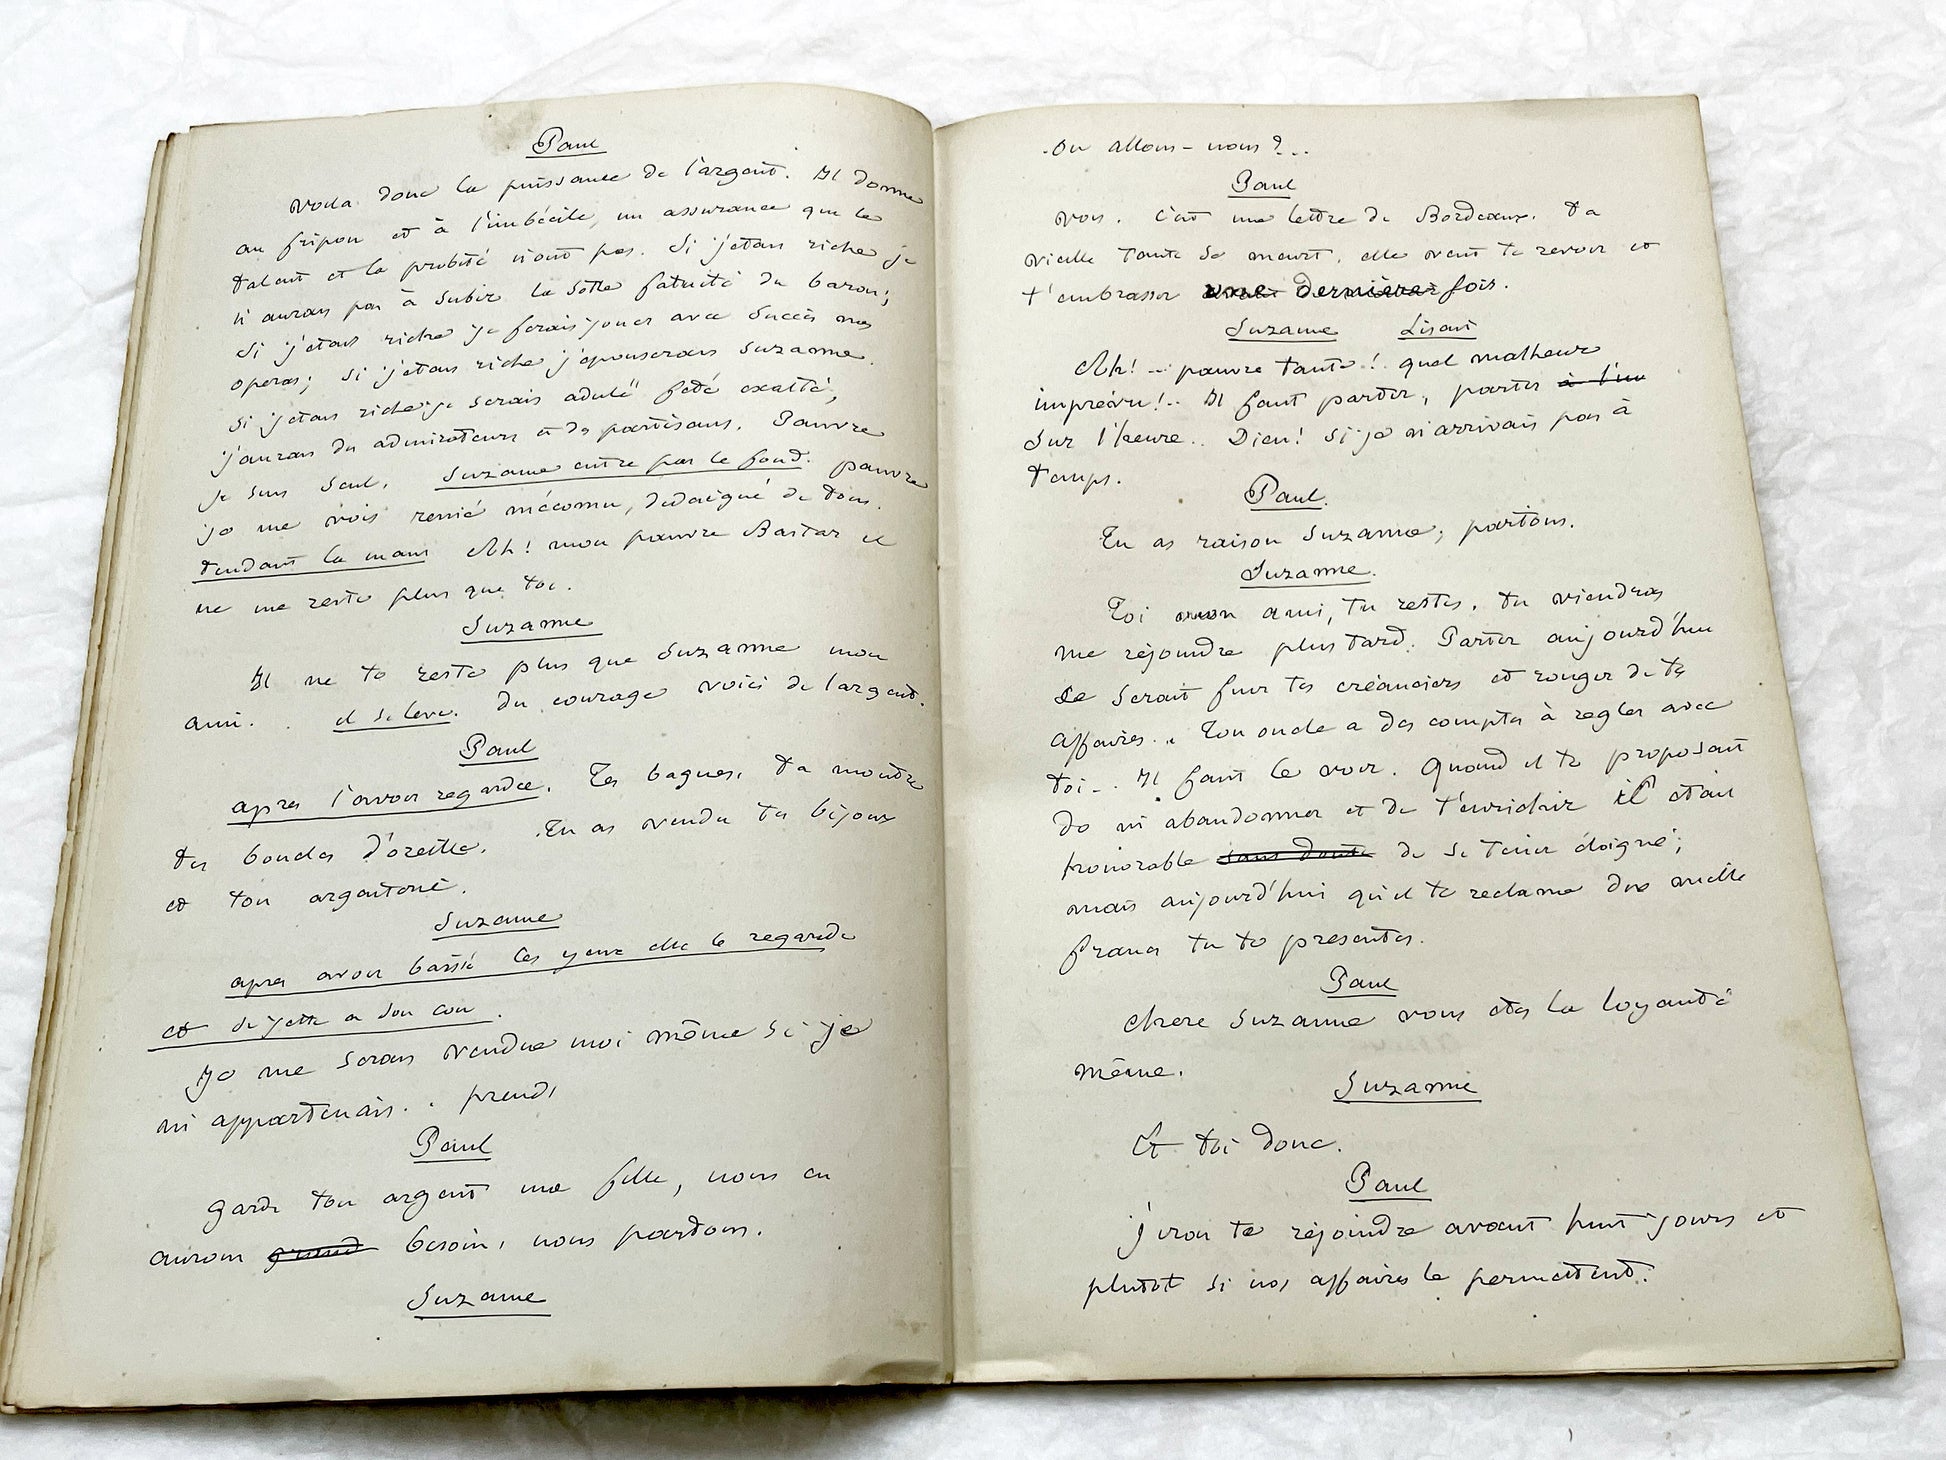 Paul
Voila donc la puissance de l'argent. Il donne
au fripon et à l'imbécile, un assurance que le
talent et la probité n'ont pas. Si j'etais riche je
n'aurais pas à subir la sotte fatuité du baron;
Si j'etais riche je ferais jouer avec succès mes
operas; si j'etais riche j'epouserais Suzanne.
Si j'etais riche je serais adulé fété exalté,
j'aurais des admirateurs et des partisans. Pauvre
je suis seul. Suzanne entre par le fond. pauvre
je me vois renié méconnu, dedaigné de tous.
tendant la main Ah! mon pauvre Bastar il
ne me reste plus que toi.
Suzanne
Il ne te reste plus que Suzanne mon
ami. . il se leve. du courage voici de l'argent.
Paul
apres l'avoir regardée. Tes bagues, ta montre
tes boucles d'oreille. Tu as vendu tes bijoux
et ton argenterie.
Suzanne
apres avoir baissé les yeux elle le regarde
et se jette a son cou.
Je me serais vendue moi même si je
m'appartenais. . prends
Paul
Garde ton argent ma fille, nous en
aurons grand besoin, nous partons.
Suzanne
Ou allons-nous?..
Paul
Vois. C'est une lettre de Bordeaux. Ta
vieille tante se meurt, elle veut te revoir et
t'embrasser une derniere fois.
Suzanne Lisant
Ah! ... pauvre tante! quel malheur
imprévu!.. Il faut partir, partir à l'in
sur l'heure.. Dieu! si je n'arrivais pas à
temps.
Paul.
Tu as raison Suzanne, partons.
Suzanne.
Toi mon ami, tu restes. tu viendras
me rejoindre plus tard. Partir aujourd'hui
ce serait fuir tes créanciers et rougir de tes
affaires.. Ton oncle a des comptes à regler avec
toi.. Il faut le voir. Quand il te proposait
de m'abandonner et de t'enrichir il était
honorable sans doute de se tenir éloigné;
mais aujourd'hui qu'il te reclame dix mille
francs tu te presentes.
Paul
Chere Suzanne vous etes la loyauté
même.
Suzanne
Et toi donc.
Paul
J'irai te rejoindre avant huit jours et
plutot si nos affaires le permettent.